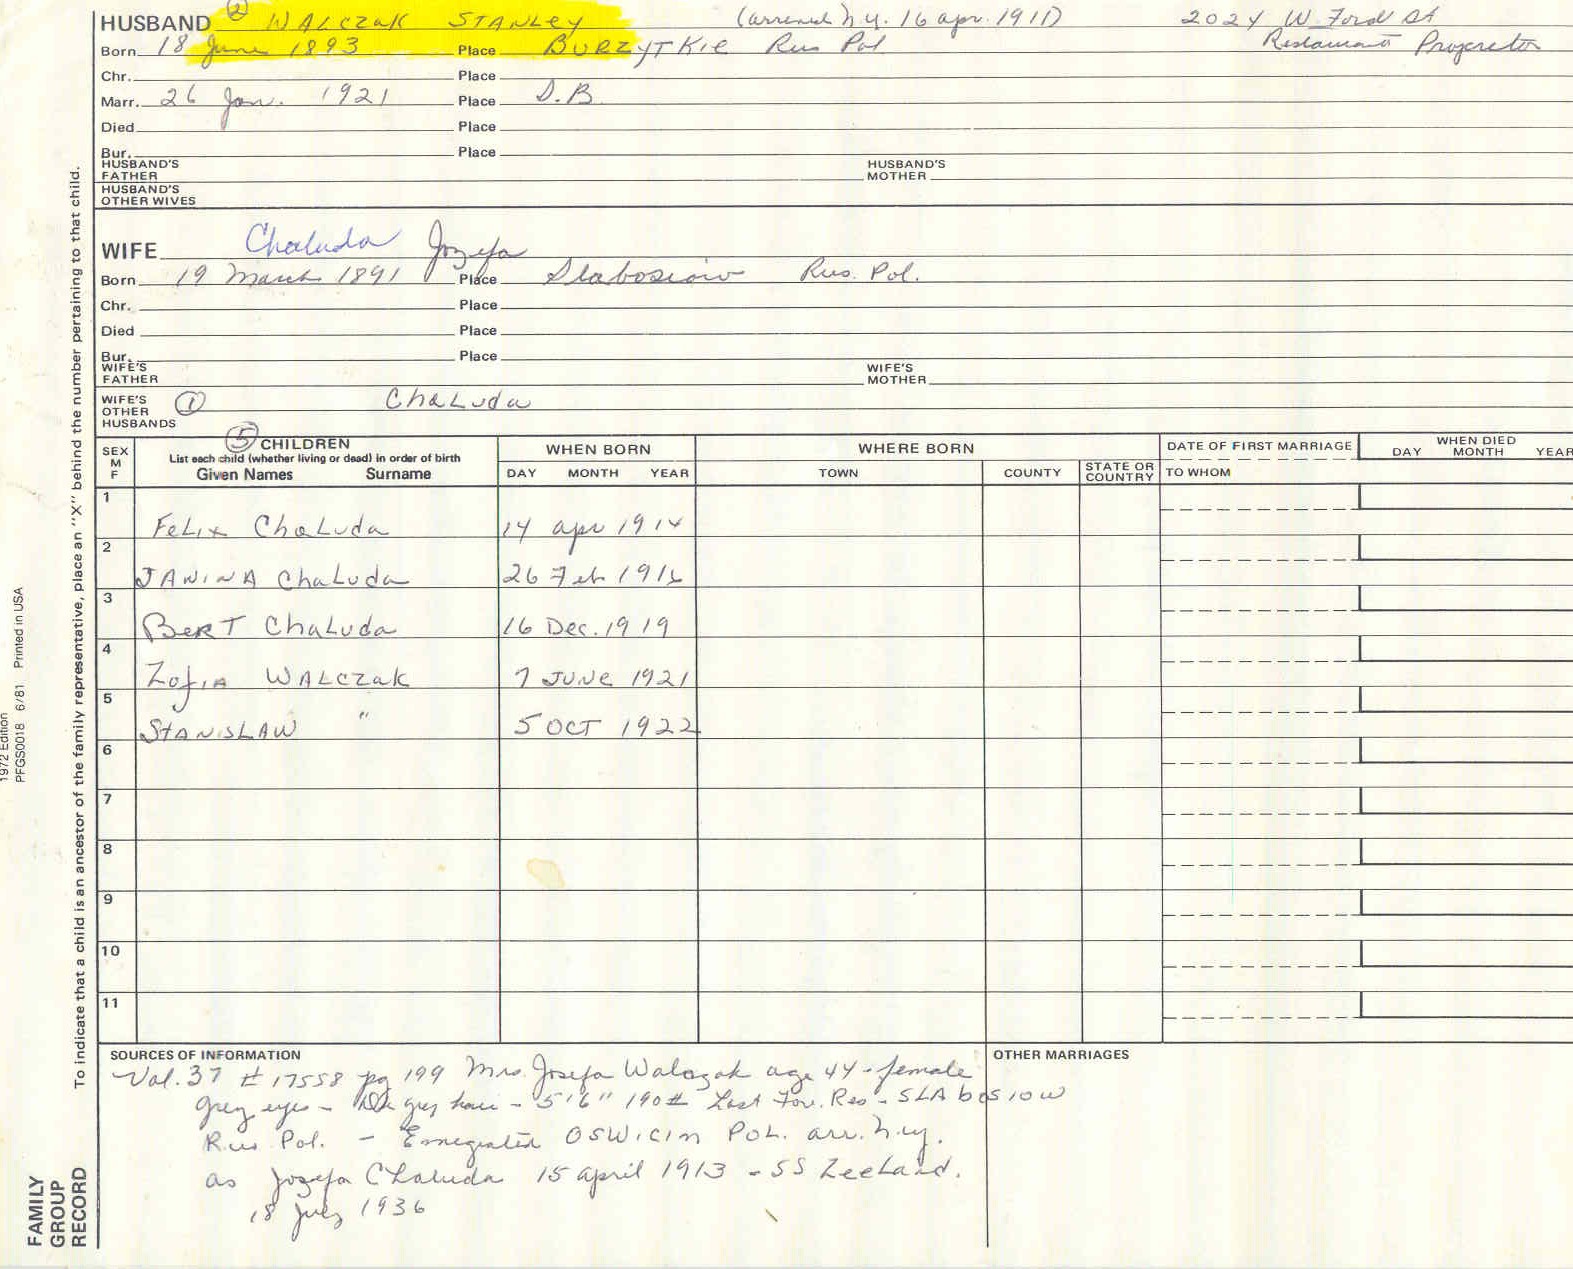 HUSBAND ② WALCZAK STANLEY (arrived N.Y. 16 apr. 1911) 2024 W. Ford St
Born 18 June 1893 Place BURZYTKIE Rus Pol Restaurant Propreitor
Chr. Place
Marr. 26 Jan. 1921 Place S.B.
Died Place
Bur. Place
HUSBAND'S FATHER HUSBAND'S MOTHER
HUSBAND'S OTHER WIVES
WIFE Chaluda Jozefa
Born 19 March 1891 Place Slabosiow Rus. Pol.
Chr. Place
Died Place
Bur. Place
WIFE'S FATHER WIFE'S MOTHER
WIFE'S OTHER HUSBANDS ① ChaLuda
SEX M F ⑤ CHILDREN WHEN BORN WHERE BORN DATE OF FIRST MARRIAGE WHEN DIED
List each child (whether living or dead) in order of birth DAY MONTH YEAR
Given Names Surname DAY MONTH YEAR TOWN COUNTY STATE OR COUNTRY TO WHOM
1 FeLix ChaLuda 14 apr 1914
2 JANINA ChaLuda 26 Feb 1916
3 BerT ChaLuda 16 Dec. 1919
4 ZofiA WALCZAK 7 JUNE 1921
5 STANISLAW " 5 OCT 1922
6
7
8
9
10
11
SOURCES OF INFORMATION OTHER MARRIAGES
Vol. 37 # 17558 pg 199 Mrs. Josefa Walczak age 44 - female
grey eyes - Dk grey hair - 5'6" 190# Last For. Res - SLAbosiow
Rus Pol. - Emegrated OSWICIM POL. arr. N.Y.
as Jozefa Chaluda 15 april 1913 - SS ZeeLand.
18 July 1936
To indicate that a child is an ancestor of the family representative, place an "X" behind the number pertaining to that child.
1972 Edition
PFGS0018 6/81 Printed in USA
FAMILY
GROUP
RECORD